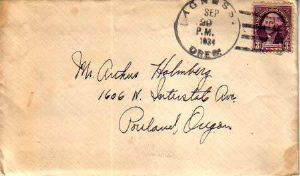 AGNESS
SEP
30
P.M.
1934
OREG.
Mr. Arthur Holmberg
1606 N. Interstate Ave.
Portland, Oregon